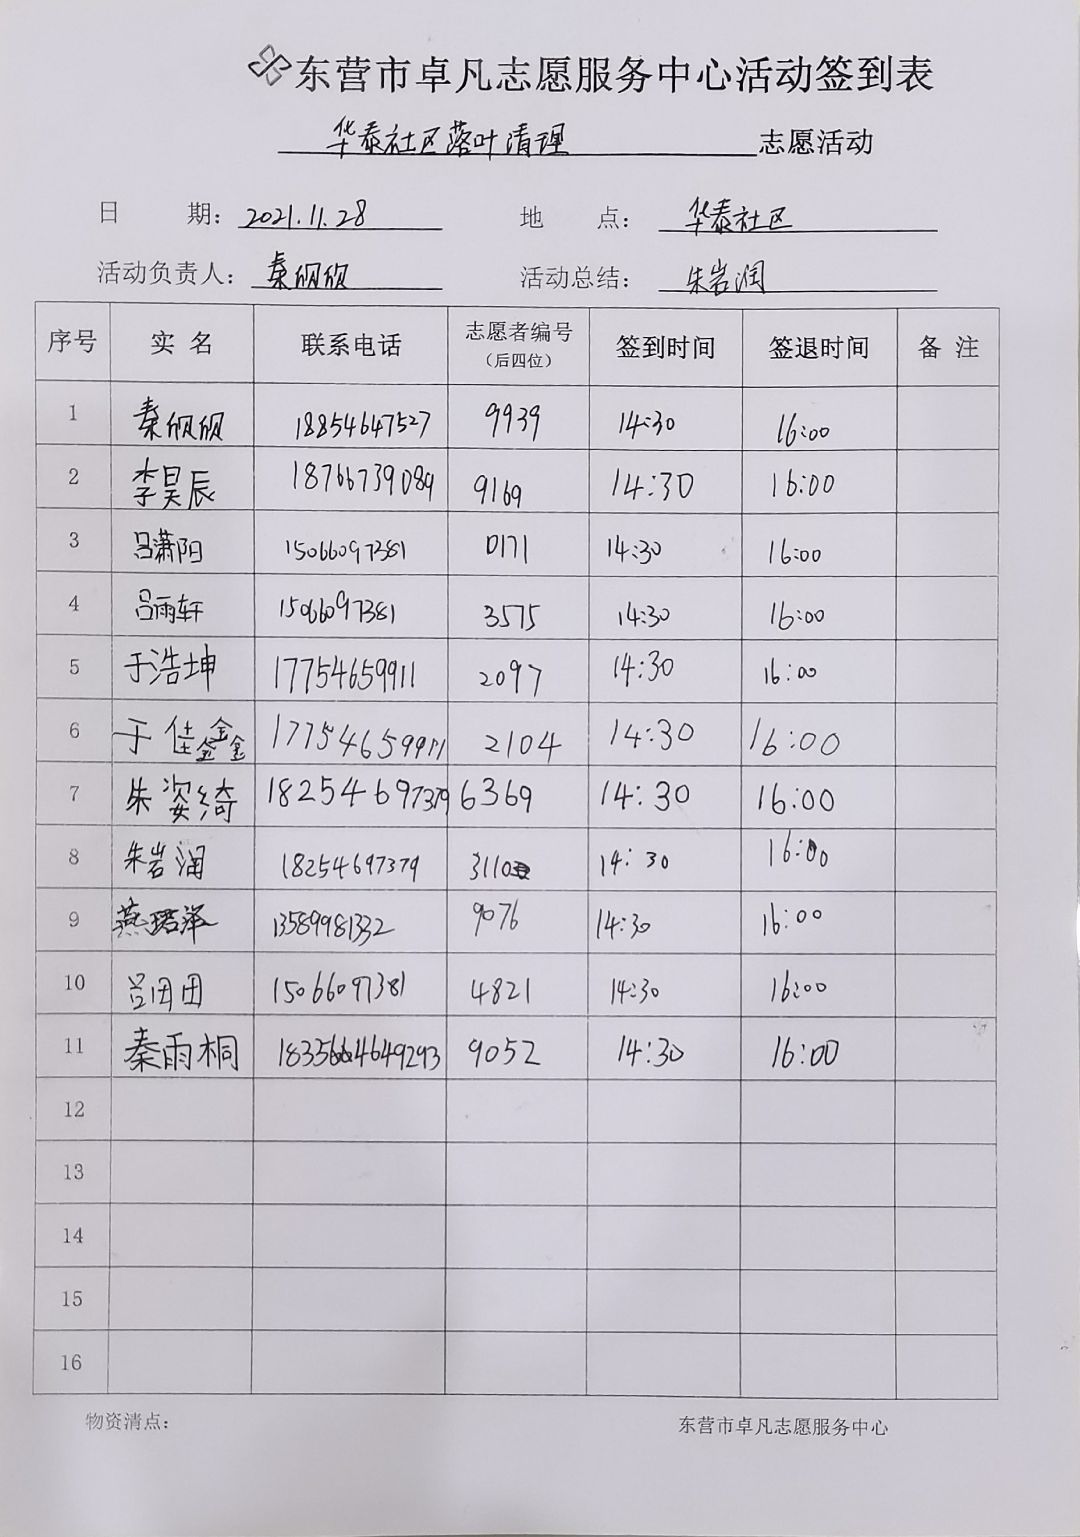 东营市卓凡志愿服务中心活动签到表
华泰社区落叶清理 志愿活动
日 期: 2021.11.28 地 点: 华泰社区
活动负责人: 秦砚砚 活动总结: 朱岩润
序号 实 名 联系电话 志愿者编号 (后四位) 签到时间 签退时间 备 注
1 秦砚砚 18854647527 9939 14:30 16:00
2 李昊辰 18766739089 9169 14:30 16:00
3 吕潇阳 15066097381 0171 14:30 16:00
4 吕雨轩 15066097381 3575 14:30 16:00
5 于浩坤 17754659911 2097 14:30 16:00
6 于佳鑫 17754659911 2104 14:30 16:00
7 朱姿绮 18254697379 6369 14:30 16:00
8 朱岩润 18254697379 3110 14:30 16:00
9 燕珺泽 13589981332 9076 14:30 16:00
10 吕团团 15066097381 4821 14:30 16:00
11 秦雨桐 9052 14:30 16:00
12
13
14
15
16
物资清点: 东营市卓凡志愿服务中心